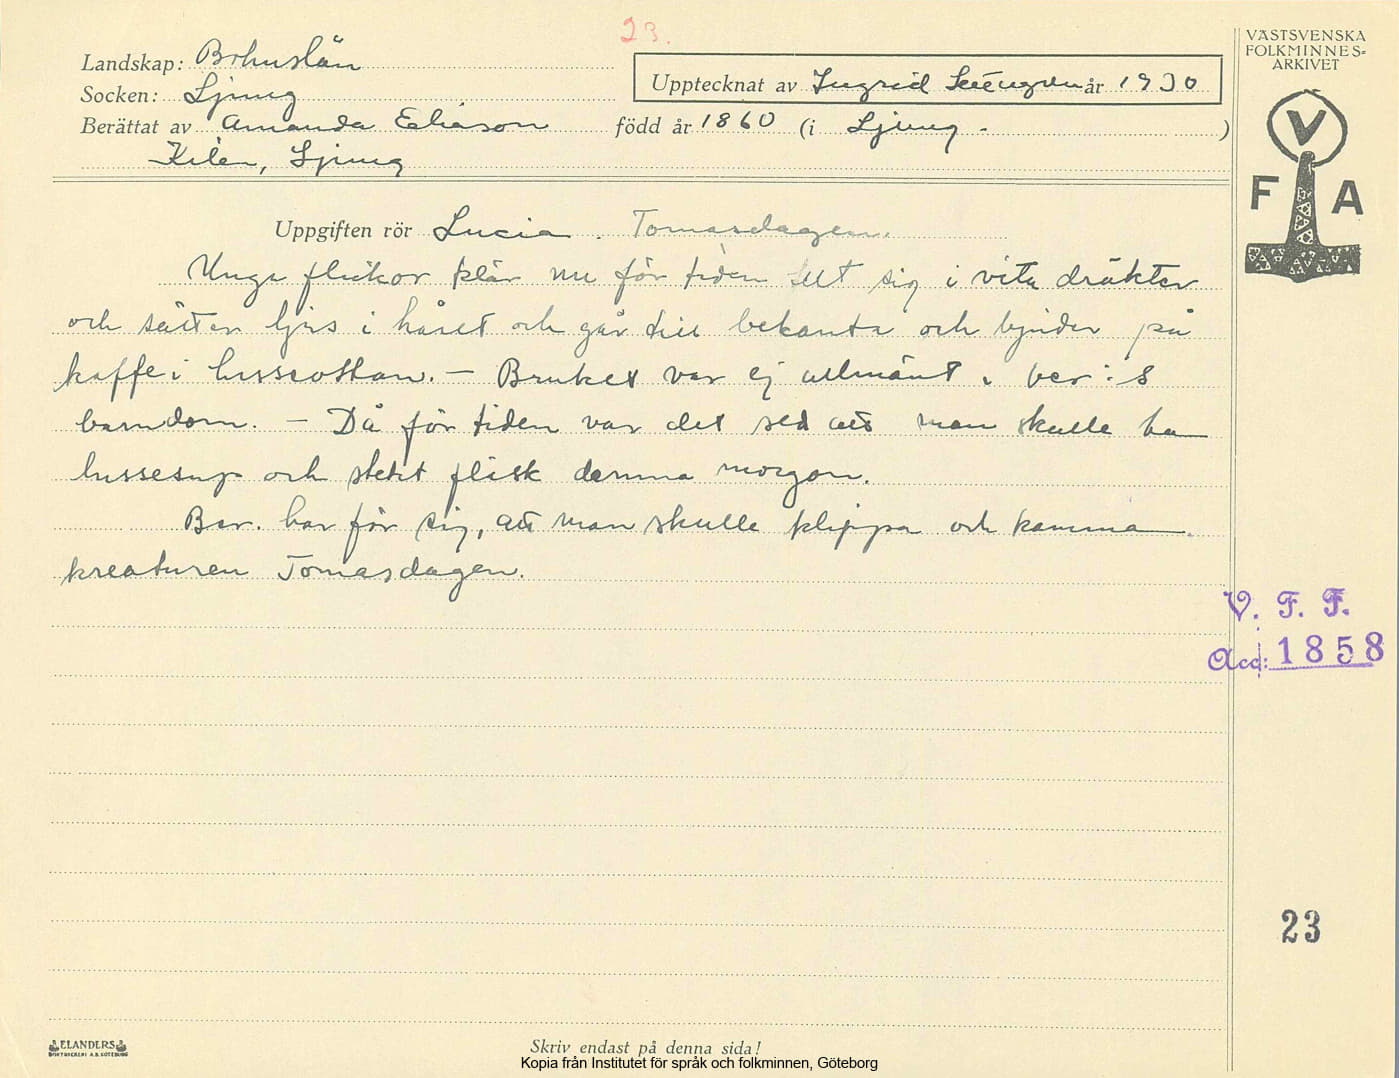 23.
VÄSTSVENSKA
FOLKMINNES-
ARKIVET
V
F A
Landskap: Bohuslän
Socken: Ljung
Upptecknat av Ingrid år 1930
Berättat av Amanda Eliason född år 1860 (i Ljung. )
Kilen, Ljung
Uppgiften rör Lucia. Tomasdagen.
Unga flickor klär nu för tiden ut sig i vita dräkter
och sätter ljus i håret och går till bekanta och bjuder på
kaffe i lusseottan. — Bruket var ej allmänt i ber:s
barndom. — Då för tiden var det sed att man skulle ha
lussesup och stekt fläsk denna morgon.
Ber. har för sig, att man skulle klippa och kamma
kreaturen Tomasdagen.
V. F. F.
Acc: 1858
23
ELANDERS
BOKTRYCKERI A.B. GÖTEBORG
Skriv endast på denna sida!
Kopia från Institutet för språk och folkminnen, Göteborg